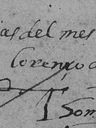 as del mes
Lorenço
Tom